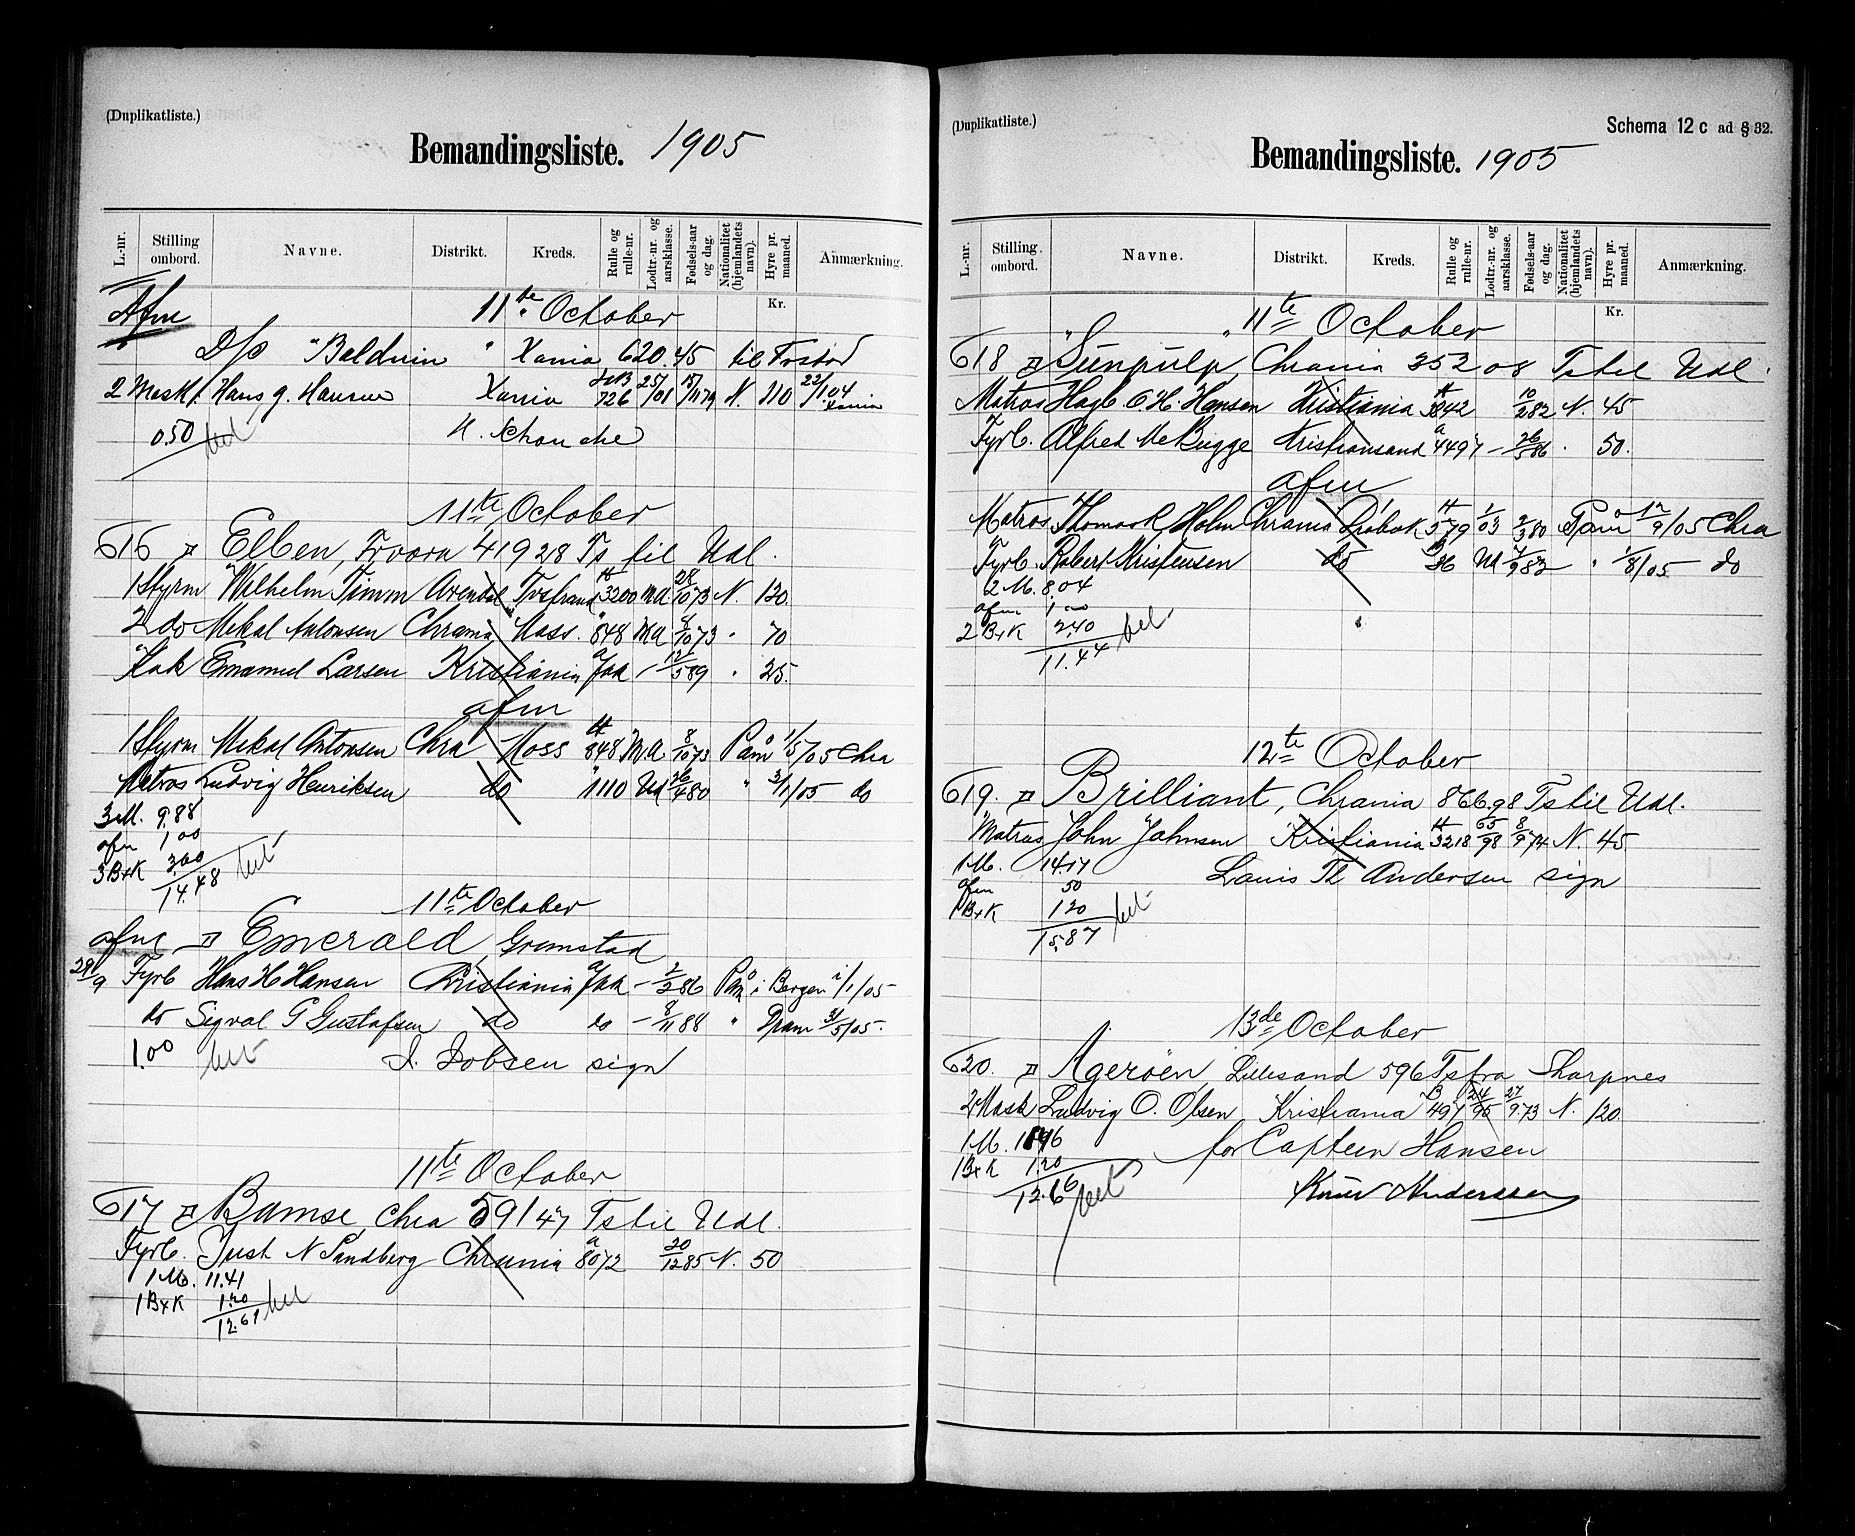 (Duplikatliste.)
Bemandingsliste. 1905
L.-nr. Stilling ombord. Navne. Distrikt. Kreds. Rulle og rulle-nr. Lodtr.-nr. og aarsklasse. Fødsels-aar og dag. Nationalitet (hjemlandets navn). Hyre pr. maaned. Anmærkning.
Kr.
Afm 11te October
D/S "Balduin" Xania 620.45 til
2 Mask. Hans g. Hansen Xania 726 25/01 79 N. 110 22/1 04 Xania
0.50
11te October
616 Elben, 41928 Ts til Udl.
1 Styrm Wilhelm Timm Tvstrand 3200 Md 28/10 73 N. 120.
2 do Mekal Antonsen Chrania Moss. 848 Md 8/10 73 " 70
Kok Emanuel Larsen Kristiania - 12/5 89 " 25.
afm
1 Styrm Mekal Antonsen Chra Moss 848 Md 8/10 73 Paam 1/5/05 Chra
Matros Ludvig Henriksen do 1110 Ud 26/4 80 " 3/1/05 do
3 M. 9.88
afm 1.00
3 B+K 3.60
14.48
11te October
afm Emerald, Gremstad
29/9 Fyrb Hans H Hansen Kristiania - 2/2 86 Paam i Bergen 2/1/05
do Sigval G Gustafsen do do - 8/11 88 " Dram 31/5/05.
1.00
I. Iobsen sign
11te October
617 Bamse, Chra 591 47 Ts til Udl.
Fyrb. Just N Sandberg Chrania 8072 20/12 85 N. 50
1 M. 11.41
1 B+K 1.20
12.61
(Duplikatliste.) Schema 12 c ad § 32.
Bemandingsliste. 1905
L.-nr. Stilling ombord. Navne. Distrikt. Kreds. Rulle og rulle-nr. Lodtr.-nr. og aarsklasse. Fødsels-aar og dag. Nationalitet (hjemlandets navn). Hyre pr. maaned. Anmærkning.
Kr.
11te October
618 "Sunpulp", Chrania 352 08 Ts til Udl.
Matros Hagb. O H. Hansen Kristiania 3842 10/2 82 N. 45
Fyrb. Alfred M Bugge Kristiansand 4497 - 26/5 86 . 50.
afm
Matros Thomas K Holm Chrania Drøbak 579 1/03 2/3 80 Paam 12/9/05 Chra
Fyrb. Robert Kristensen do 36 Ud 7/9 82 " 1/8/05 do
2 M. 8.04
afm 1.00
2 B+K 2.40
11.44
12te October
619. Brilliant, Chrania 866.98 Ts til Udl.
Matros John Johnsen Kristiania 3218 65/98 8/9 74 N. 45
1 M. 14.17
afm 50
1 B+K 1 20
15.87
Lauis Th Andersen sign
13de October
620. Agerøen, Lillesand 596 Ts fra Skarpnes
2 Mask Ludvig O. Olsen Kristiania 497 24/95 27/9.73 N. 120.
1 M.
1 B+K 1.20
12.66
for Captein Hansen
Knud Anderssen